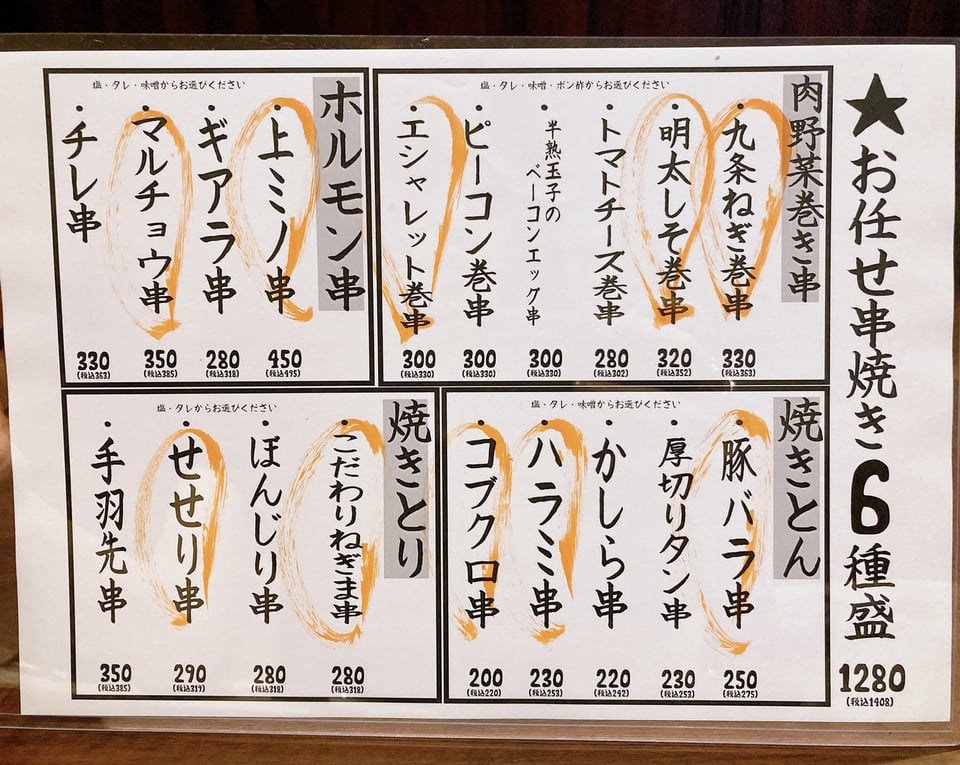 ★お任せ串焼き6種盛
1280
(税込1408)
肉野菜巻き串
塩・タレ・味噌・ポン酢からお選びください
・九条ねぎ巻串
330
(税込363)
・明太しそ巻串
320
(税込352)
・トマトチーズ巻串
280
(税込302)
・半熟玉子の
ベーコンエッグ串
300
(税込330)
・ピーコン巻串
300
(税込330)
・エシャレット巻串
300
(税込330)
ホルモン串
塩・タレ・味噌からお選びください
・上ミノ串
450
(税込495)
・ギアラ串
280
(税込318)
・マルチョウ串
350
(税込385)
・チレ串
330
(税込363)
焼きとん
塩・タレ・味噌からお選びください
・豚バラ串
250
(税込275)
・厚切りタン串
230
(税込253)
・かしら串
220
(税込242)
・ハラミ串
230
(税込253)
・コブクロ串
200
(税込220)
焼きとり
塩・タレからお選びください
・こだわりねぎま串
280
(税込318)
・ぼんじり串
280
(税込318)
・せせり串
290
(税込319)
・手羽先串
350
(税込385)